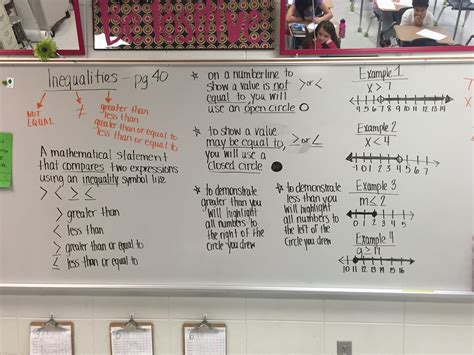 Inequalities – pg.40
NOT
EQUAL
≠
greater than
less than
greater than or equal to
less than or equal to
A mathematical statement
that compares two expressions
using an inequality symbol like
> < ≥ ≤
> greater than
< less than
≥ greater than or equal to
≤ less than or equal to
on a numberline to
show a value is not
equal to you will
use an open circle ○
> or <
to show a value
may be equal to,
you will use a
closed circle ●
≥ or ≤
to demonstrate
greater than you
will highlight
all numbers to
the right of the
circle you drew
to demonstrate
less than you
will highlight
all numbers to
the left of the
circle you drew
Example 1
x > 7
4 5 6 7 8 9 10 11 12 13 14
Example 2
x < 4
Example 3
m ≤ 2
Example 4
10 11 12 13 14 15 16